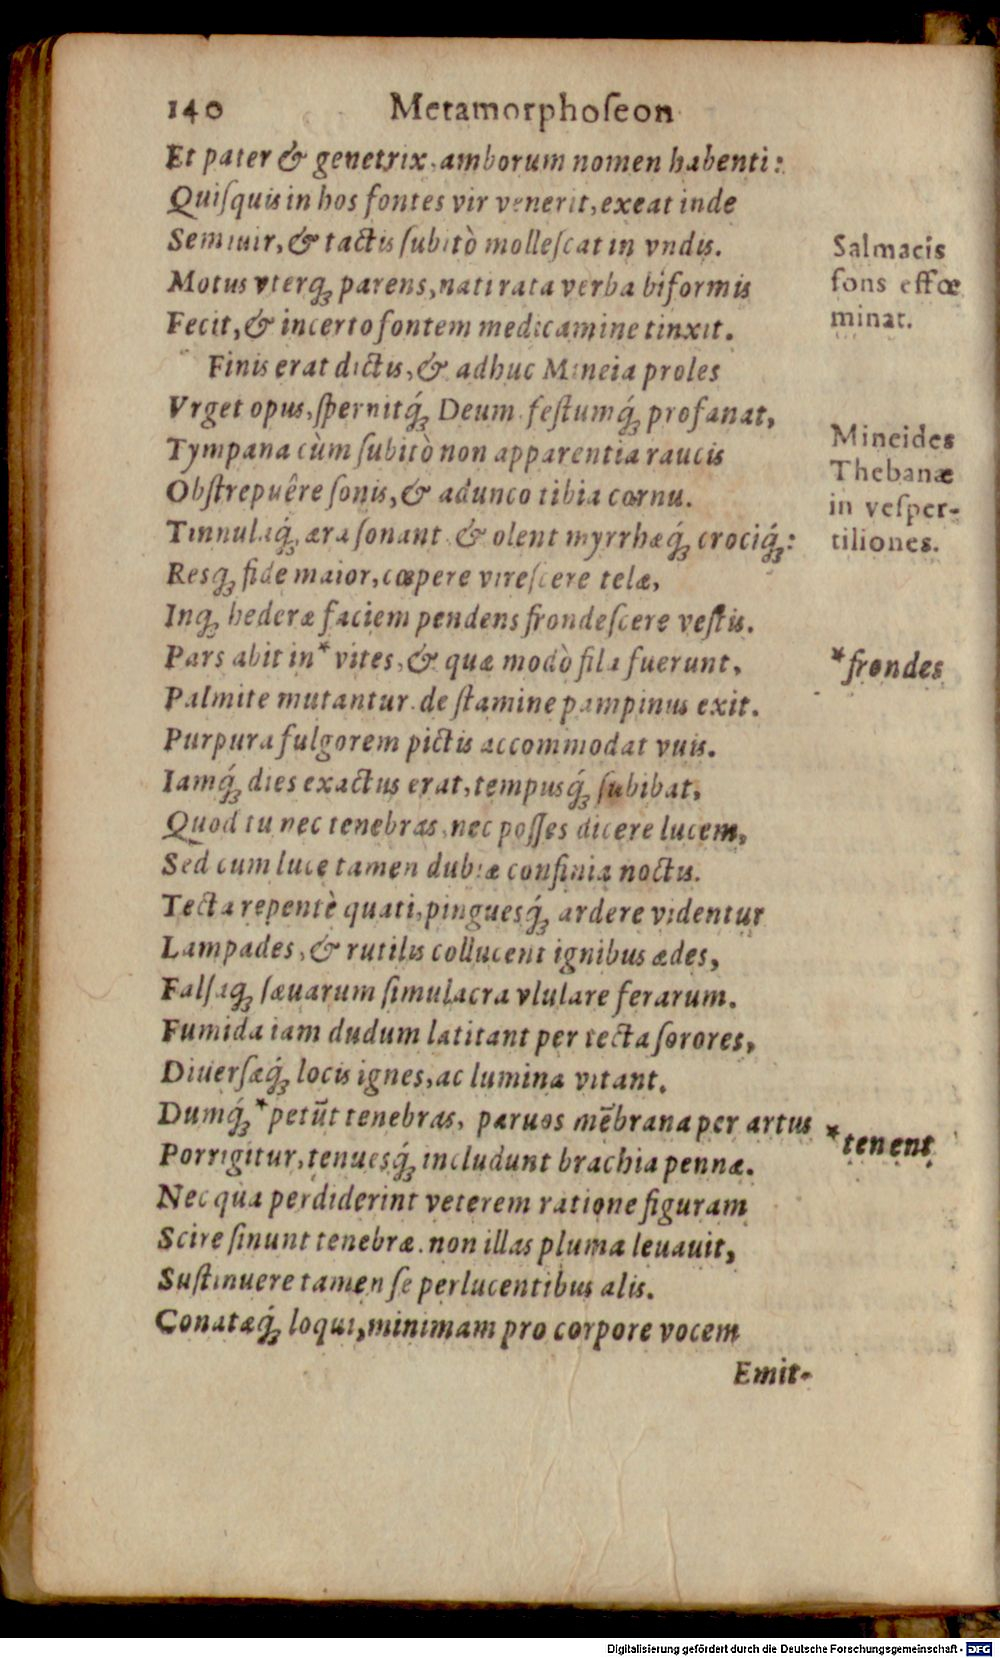 140 Metamorphoſeon
Et pater & genetrix, amborum nomen habenti:
Quiſquis in hos fontes vir venerit, exeat inde
Semiuir, & tactis ſubitò molleſcat in vndis.
Salmacis
fons effœ
minat.
Motus vterq; parens, nati rata verba biformis
Fecit, & incerto fontem medicamine tinxit.
Finis erat dictis, & adhuc Mineia proles
Vrget opus, ſpernitq́; Deum. feſtumq́; profanat,
Mineides
Thebanæ
in veſper-
tiliones.
Tympana cùm ſubitò non apparentia raucis
Obſtrepuêre ſonis, & adunco tibia cornu.
Tinnulaq́; æra ſonant. & olent myrrhæq́; crociq́;:
Resq; fide maior, cœpere vireſcere telæ,
Inq; hederæ faciem pendens frondeſcere veſtis.
Pars abit in * vites, & quæ modò fila fuerunt,
* frondes
Palmite mutantur. de ſtamine pampinus exit.
Purpura fulgorem pictis accommodat vuis.
Iamq́; dies exactus erat, tempusq́; ſubibat,
Quod tu nec tenebras, nec poſſes dicere lucem,
Sed cum luce tamen dubiæ confinia noctis.
Tecta repentè quati, pinguesq́; ardere videntur
Lampades, & rutilis collucent ignibus ædes,
Falſaq; ſæuarum ſimulacra vlulare ferarum.
Fumida iam dudum latitant per tecta ſorores,
Diuerſæq́; locis ignes, ac lumina vitant.
Dumq́; * petūt tenebras, paruos mēbrana per artus
* tenent
Porrigitur, tenuesq́; includunt brachia pennæ.
Nec qua perdiderint veterem ratione figuram
Scire ſinunt tenebræ. non illas pluma leuauit,
Suſtinuere tamen ſe perlucentibus alis.
Conatæq́; loqui, minimam pro corpore vocem
Emit-
Digitalisierung gefördert durch die Deutsche Forschungsgemeinschaft - DFG